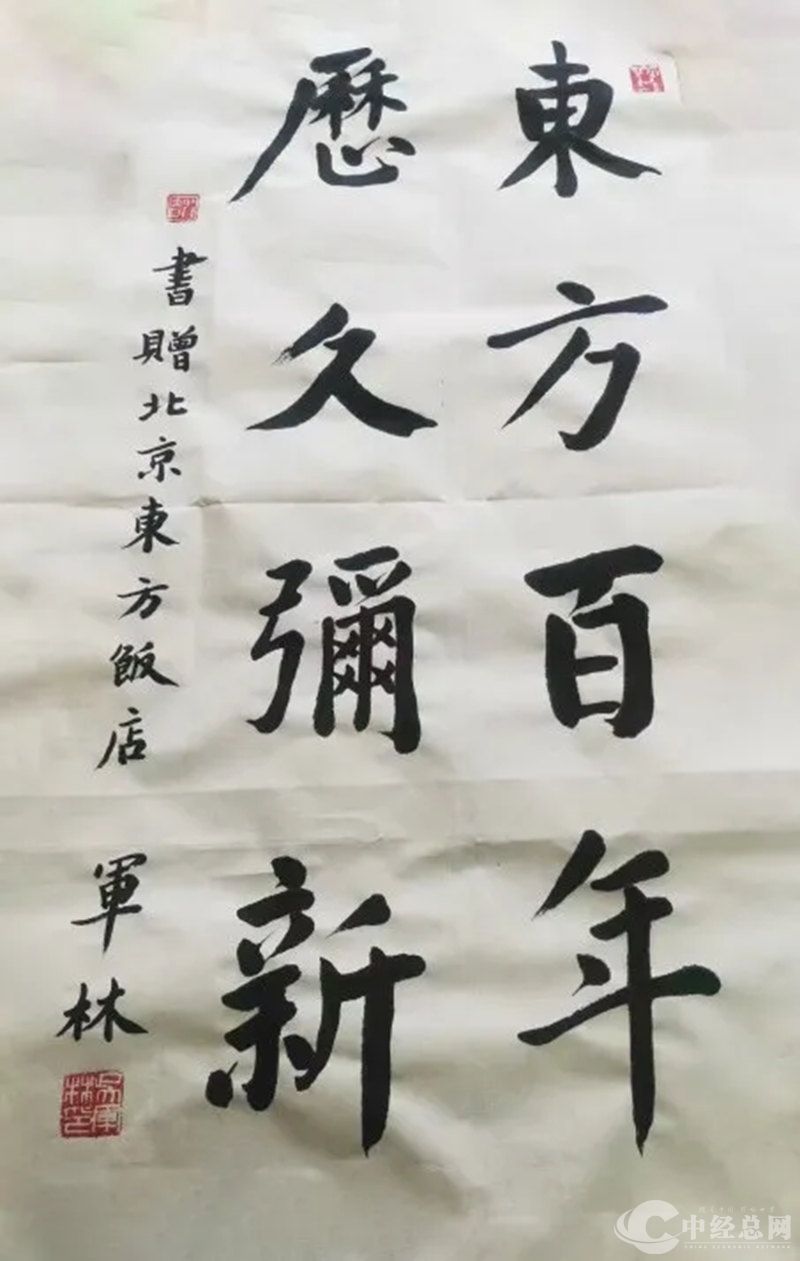 東方百年
歷久彌新
書贈北京東方飯店 軍林
中经总网
CHINA ECONOMIC NETWORK